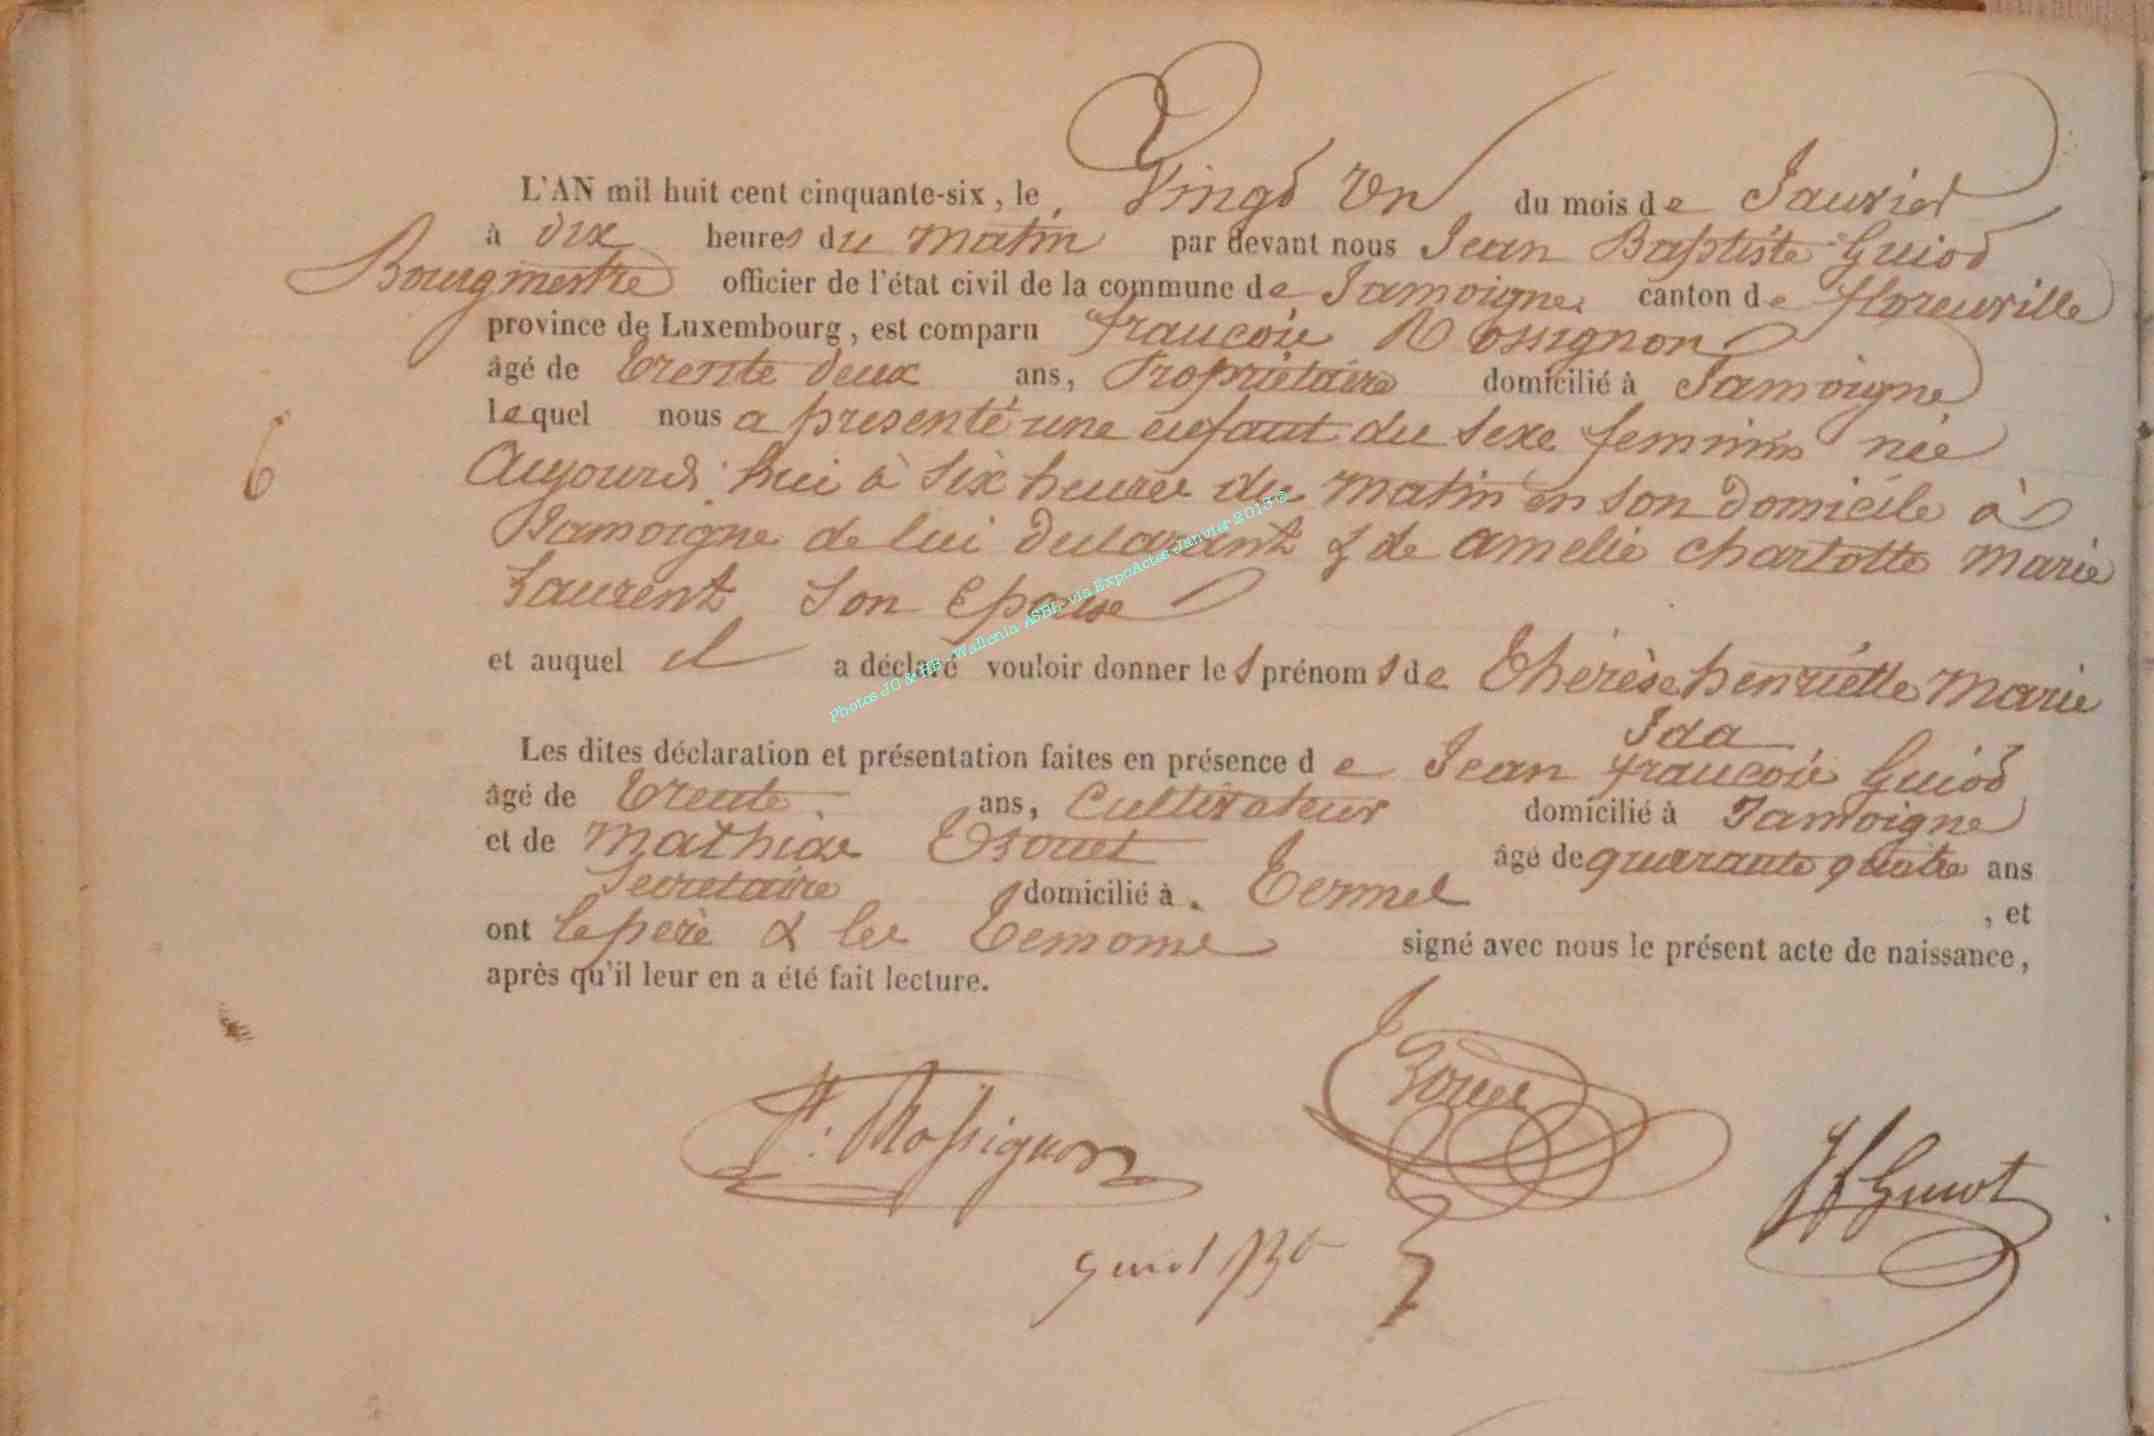 L'AN mil huit cent cinquante-six, le Vingt Un du mois de Janvier
à dix heures du matin par devant nous Jean Baptiste Guiot
Bourgmestre officier de l'état civil de la commune de Jamoigne canton de florenville
province de Luxembourg, est comparu françois Rossignon
âgé de trente deux ans, Propriétaire domicilié à Jamoigne
lequel nous a presenté une enfant du sexe feminin née
Aujourd'hui à six heures du matin en son domicile à
Jamoigne de lui declarant & de amelie charlotte marie
Laurent son epouse
et auquel il a déclaré vouloir donner les prénoms de Thérèse henriette marie
Ida
Les dites déclaration et présentation faites en présence de Jean françois Guiot
âgé de trente ans, Cultivateur domicilié à Jamoigne
et de mathias âgé de quarante quatre ans
Secretaire domicilié à Termel
, et
ont le pere & les temoins signé avec nous le présent acte de naissance,
après qu'il leur en a été fait lecture.
6
Photos JC & - Wallonia ASBL - via ExpoActes Janvier 2013
f. Rossignon
JfGuiot
guiot